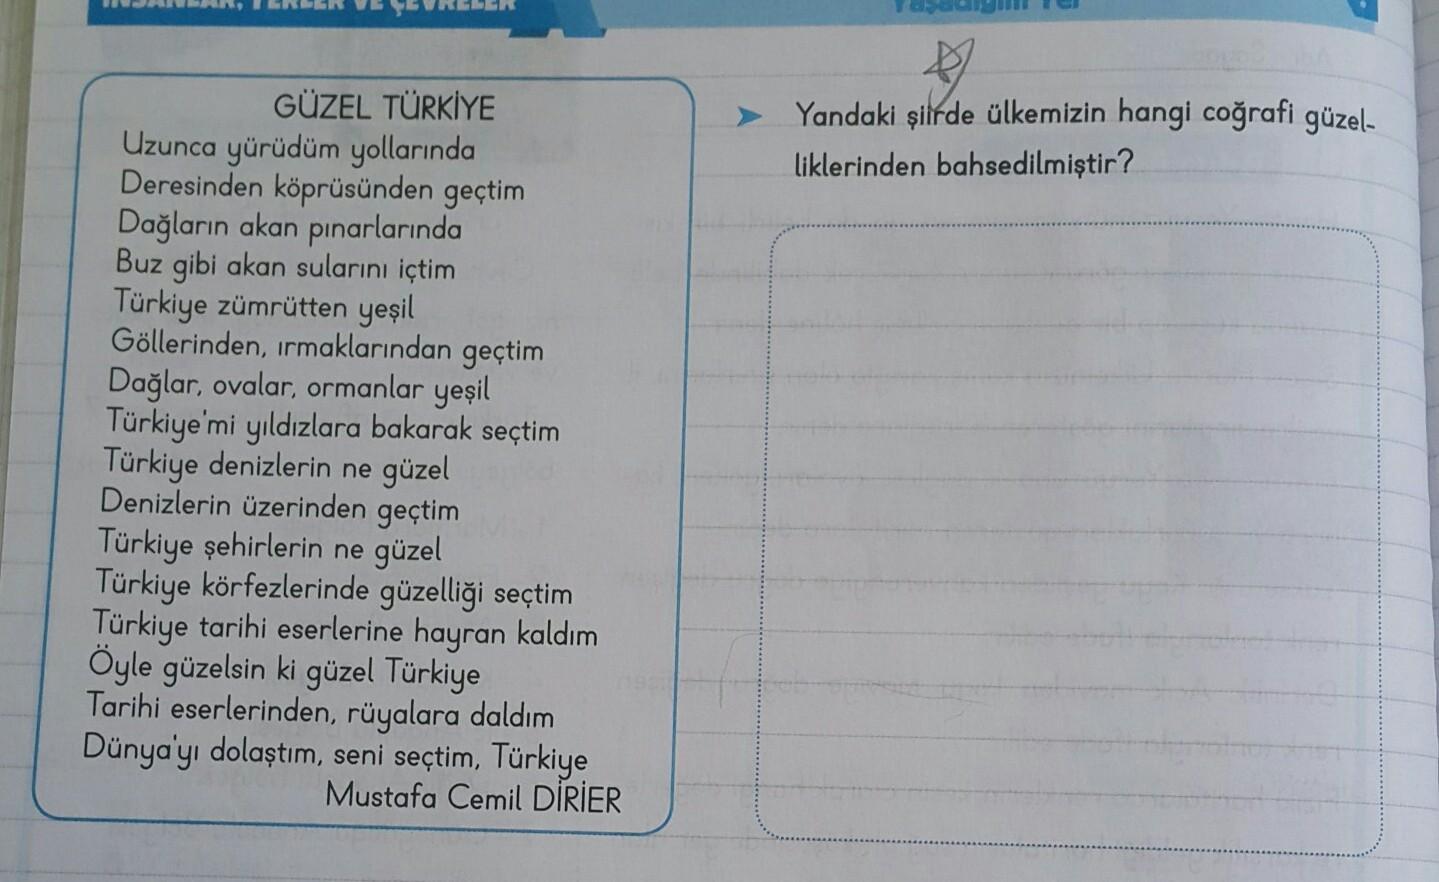 İNSANLAR, YERLER VE ÇEVRELER
Yaşadığım Yer
GÜZEL TÜRKİYE
Uzunca yürüdüm yollarında
Deresinden köprüsünden geçtim
Dağların akan pınarlarında
Buz gibi akan sularını içtim
Türkiye zümrütten yeşil
Göllerinden, ırmaklarından geçtim
Dağlar, ovalar, ormanlar yeşil
Türkiye'mi yıldızlara bakarak seçtim
Türkiye denizlerin ne güzel
Denizlerin üzerinden geçtim
Türkiye şehirlerin ne güzel
Türkiye körfezlerinde güzelliği seçtim
Türkiye tarihi eserlerine hayran kaldım
Öyle güzelsin ki güzel Türkiye
Tarihi eserlerinden, rüyalara daldım
Dünya'yı dolaştım, seni seçtim, Türkiye
Mustafa Cemil DİRİER
Yandaki şiirde ülkemizin hangi coğrafi güzel-
liklerinden bahsedilmiştir?